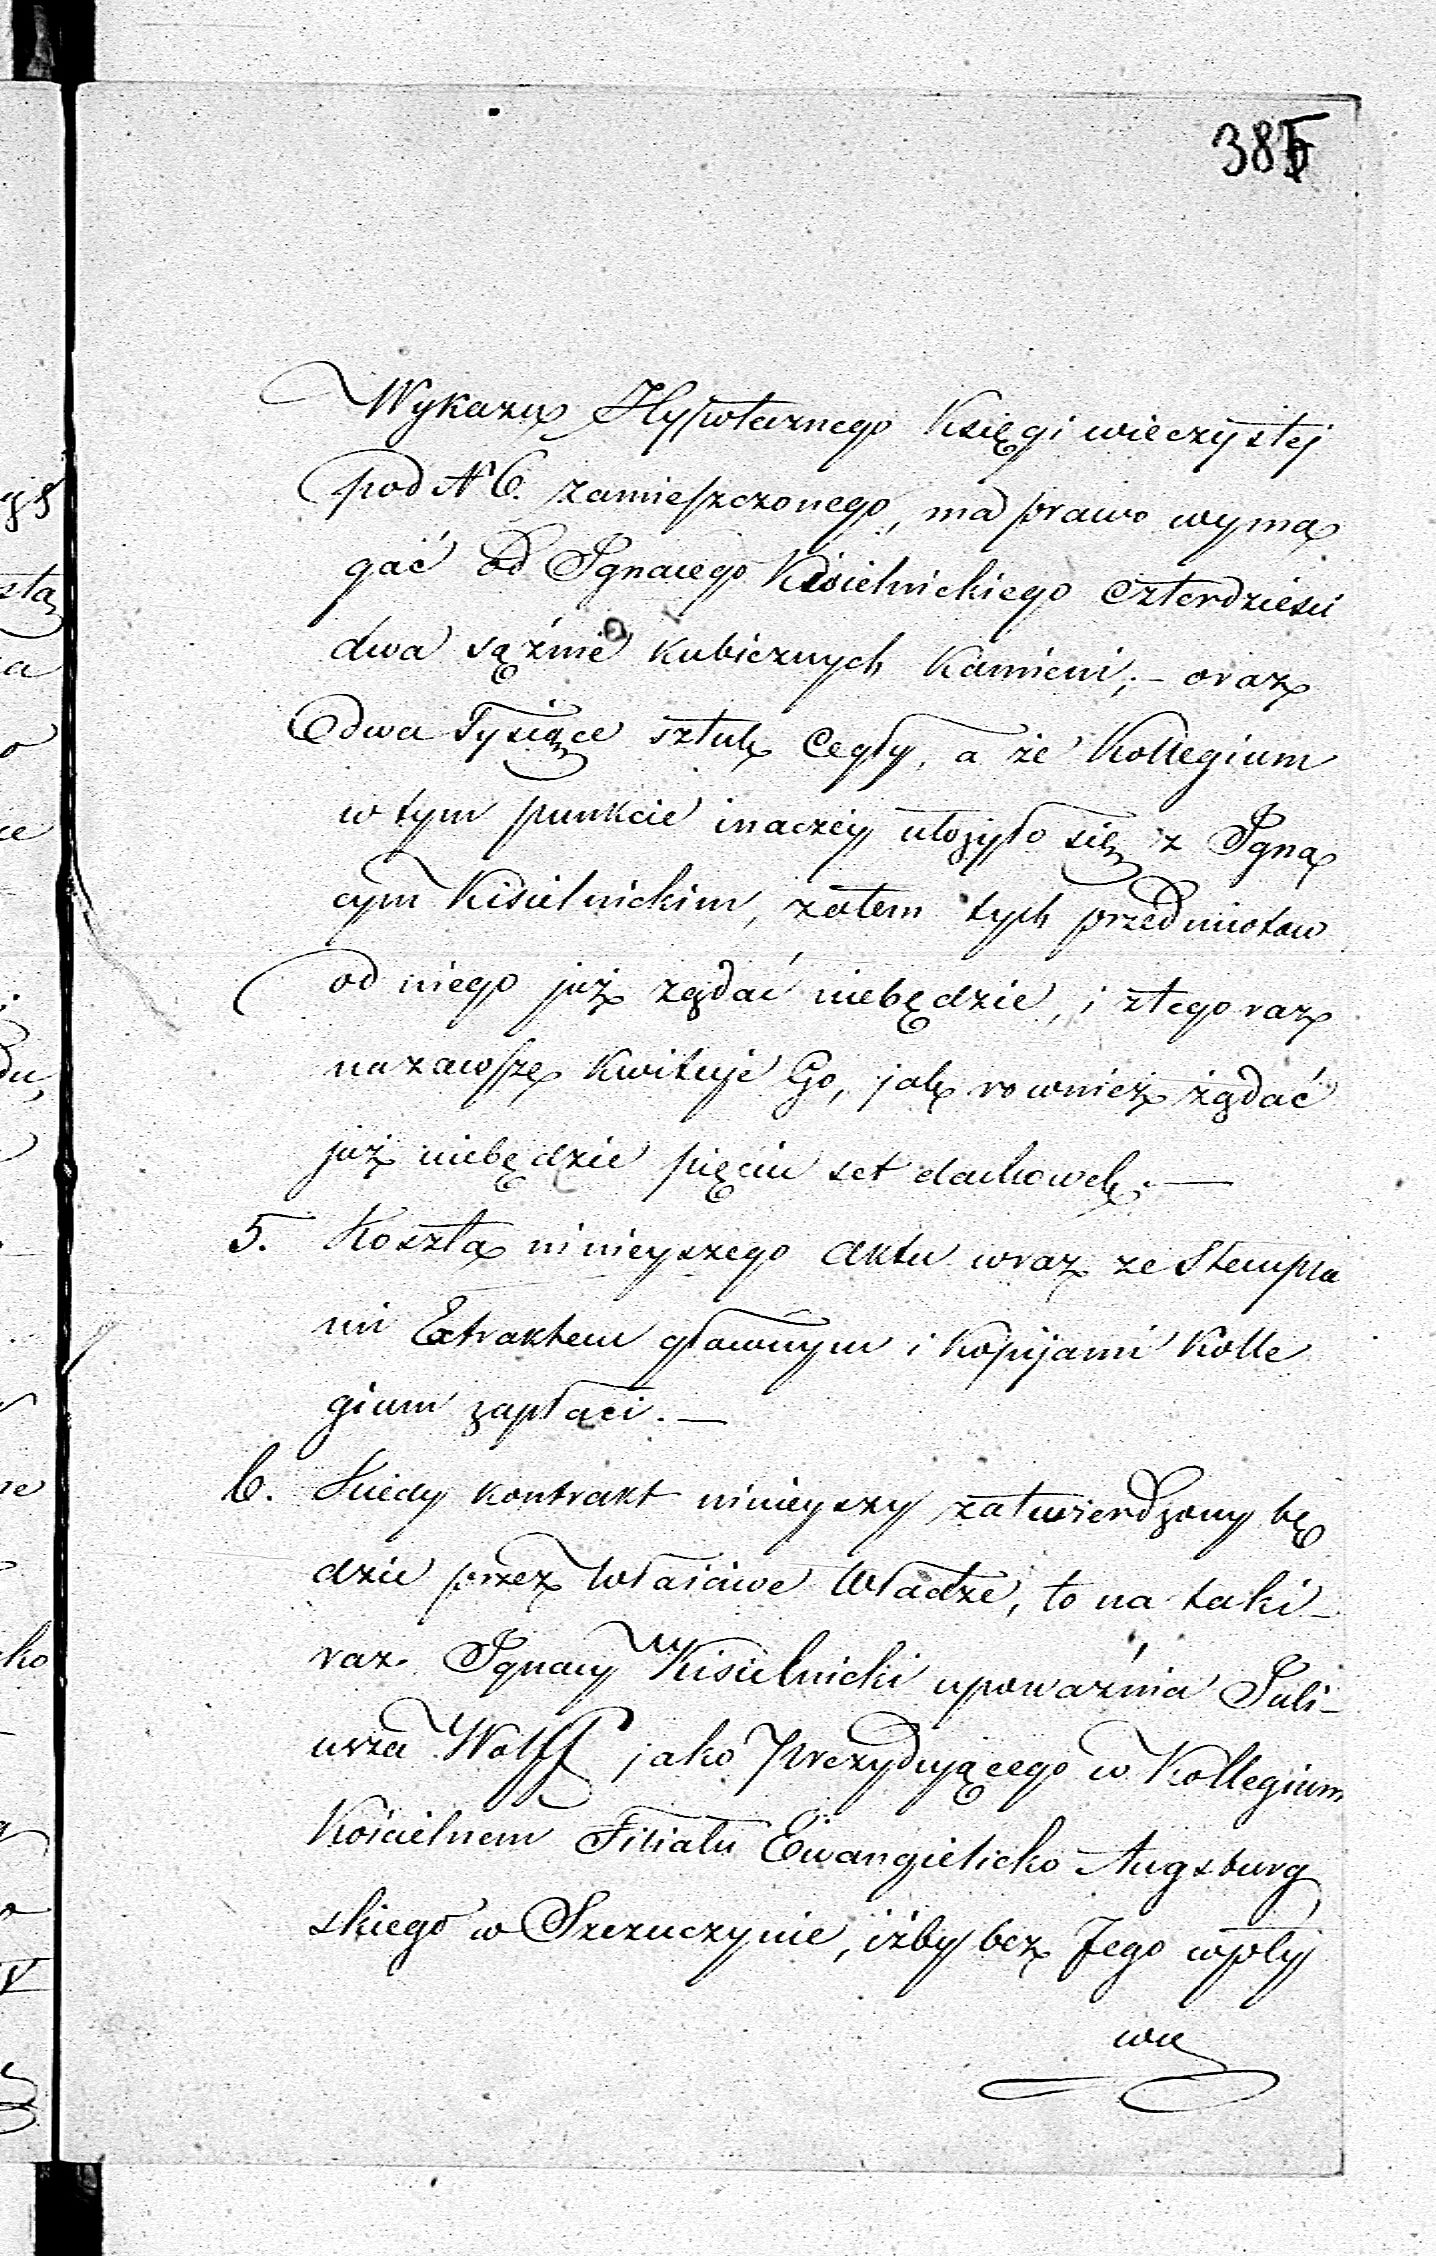 385
Wykazu Hypotecznego Księgi wieczystej
pod N 6. zamieszczonego, ma prawo wyma
gać od Ignacego Kisielnickiego czterdzieści
dwa sążnie kubicznych kamieni; – oraz
dwa Tysiące sztuk Cegły, a że Kollegium
w tym punkcie inaczéy ułożyło się z Igna
cym Kisielnickim, zatem tych przedmiotow
od niego już żądać niebędzie, i z tego raz
na zawsze kwituje Go, jak rownież żądać
już niebędzie pięciu set dachowek. —
5. Koszta ninieyszego aktu wraz ze Stempla
mi Extraktem głownym i kopijami Kolle
gium zapłaci. —
6. Kiedy kontrakt ninieyszy zatwierdzony bę
dzie przez właściwe Władze, to na taki –
raz Ignacy Kisielnicki upoważnia Juli –
usza Wolff jako Prezydującego w Kollegium
Kościelnem Filiału Ewangielicko Augsburg
skiego w Szczuczynie, iżby bez Jego wpły
wu